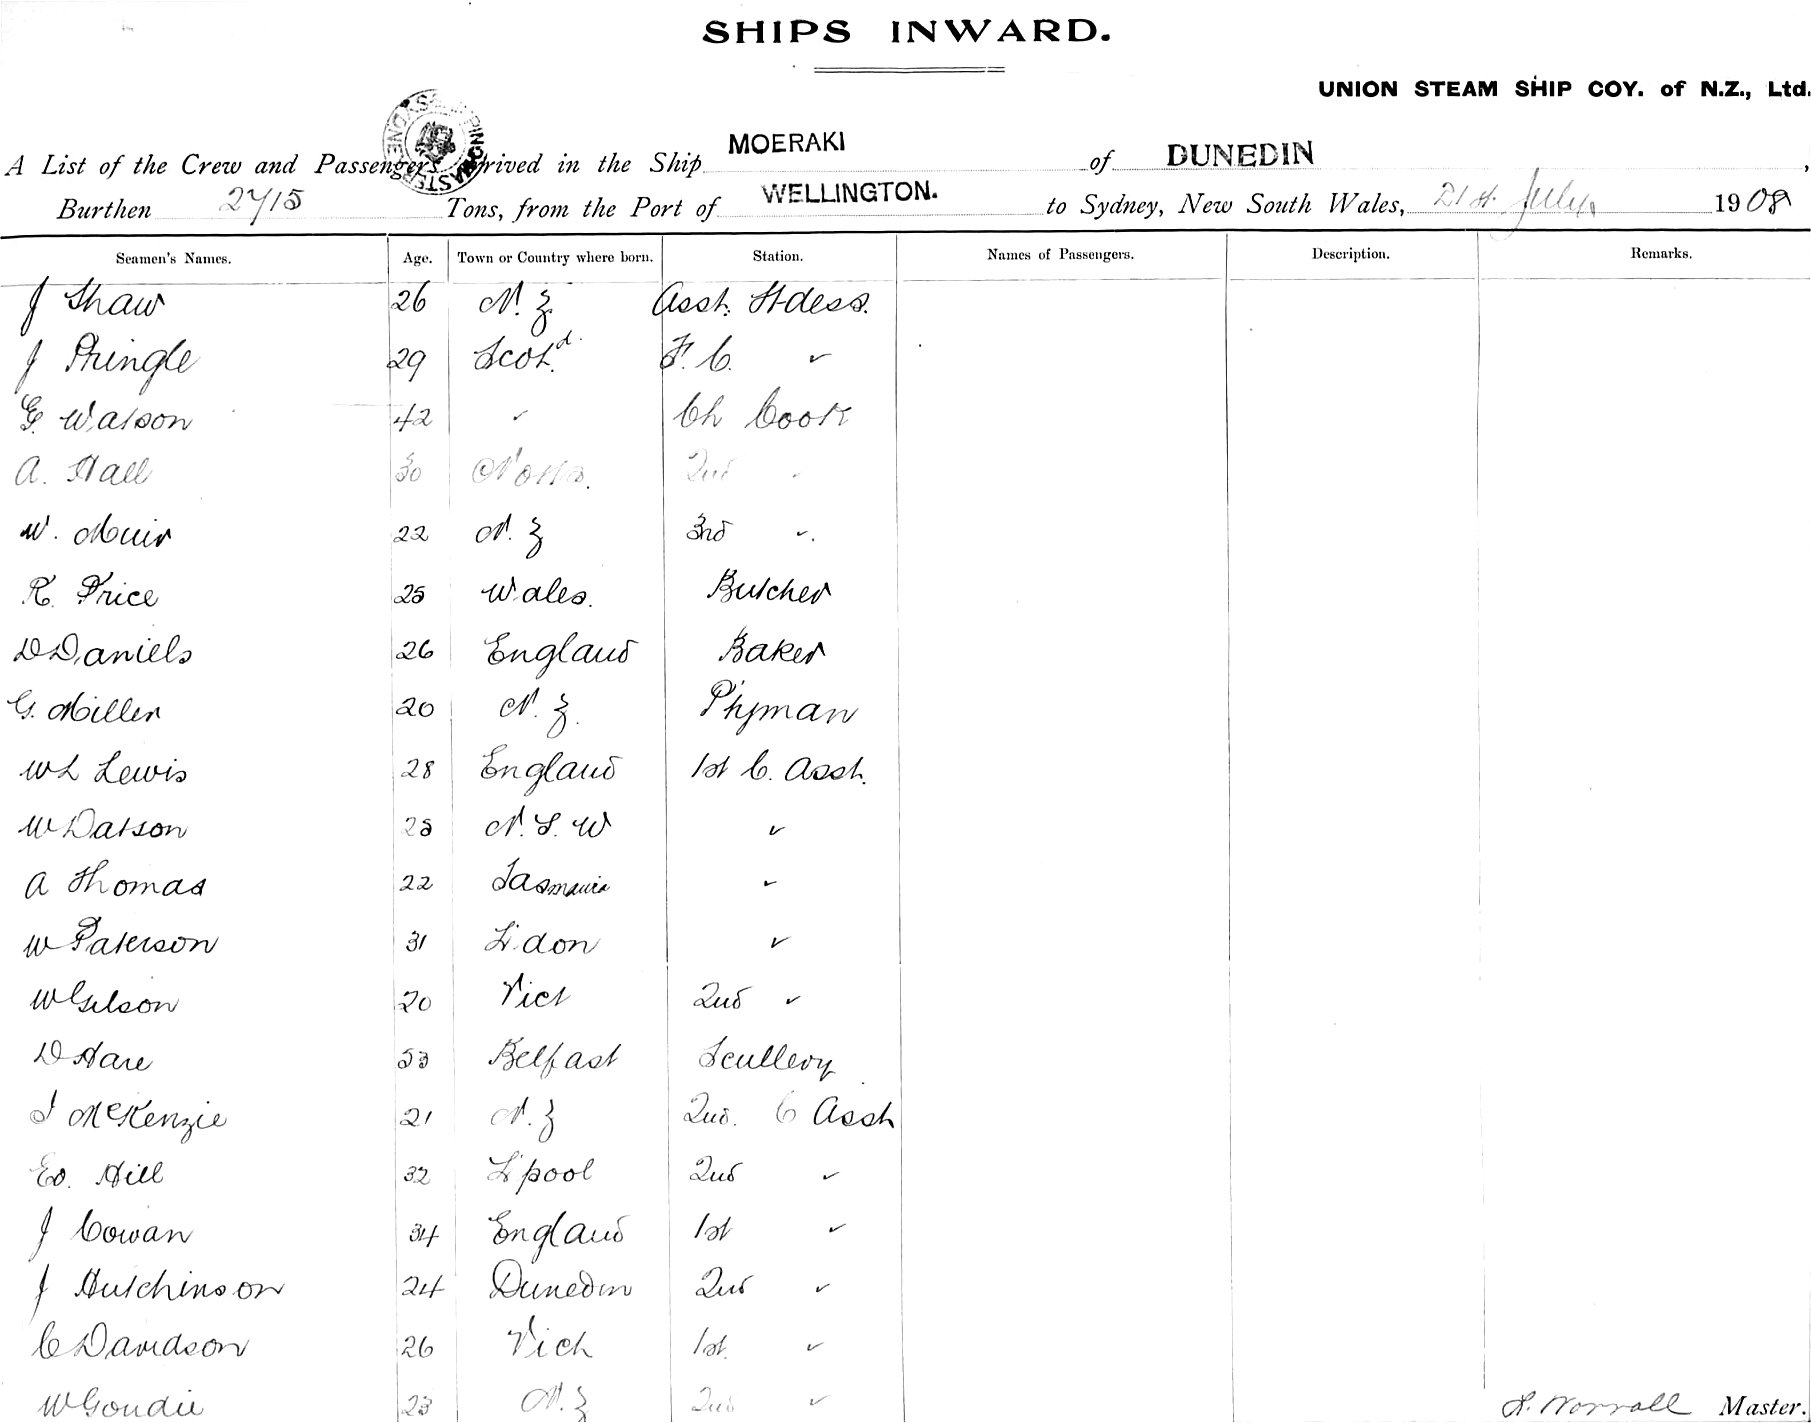 SHIPS INWARD.
UNION STEAM SHIP COY. of N.Z., Ltd.
A List of the Crew and Passengers arrived in the Ship MOERAKI of DUNEDIN,
Burthen 2715 Tons, from the Port of WELLINGTON. to Sydney, New South Wales, 21st July 1908
Seamen's Names. Age. Town or Country where born. Station. Names of Passengers. Description. Remarks.
J Shaw 26 N.Z. Asst. Stdess.
J Pringle 29 Scotd. F.C. "
G. Watson 42 " Ch Cook
A. Hall 30 Notts. 2nd "
W. Muir 22 N.Z 3rd "
R. Price 25 Wales. Butcher
D Daniels 26 England Baker
G. Miller 20 N.Z. P'tyman
W L Lewis 28 England 1st C. Asst.
W Datson 25 N.S.W "
A Thomas 22 Tasmania "
W Paterson 31 L'don "
W Gilson 20 Vict 2nd "
D Hare 53 Belfast Scullery
J McKenzie 21 N.Z 2nd. C Asst
Ed. Hill 32 L'pool 2nd "
J Cowan 34 England 1st "
J Hutchinson 24 Dunedin 2nd "
C Davidson 26 Vict 1st. "
W Goudie 23 N.Z 2nd "
Worrall Master.